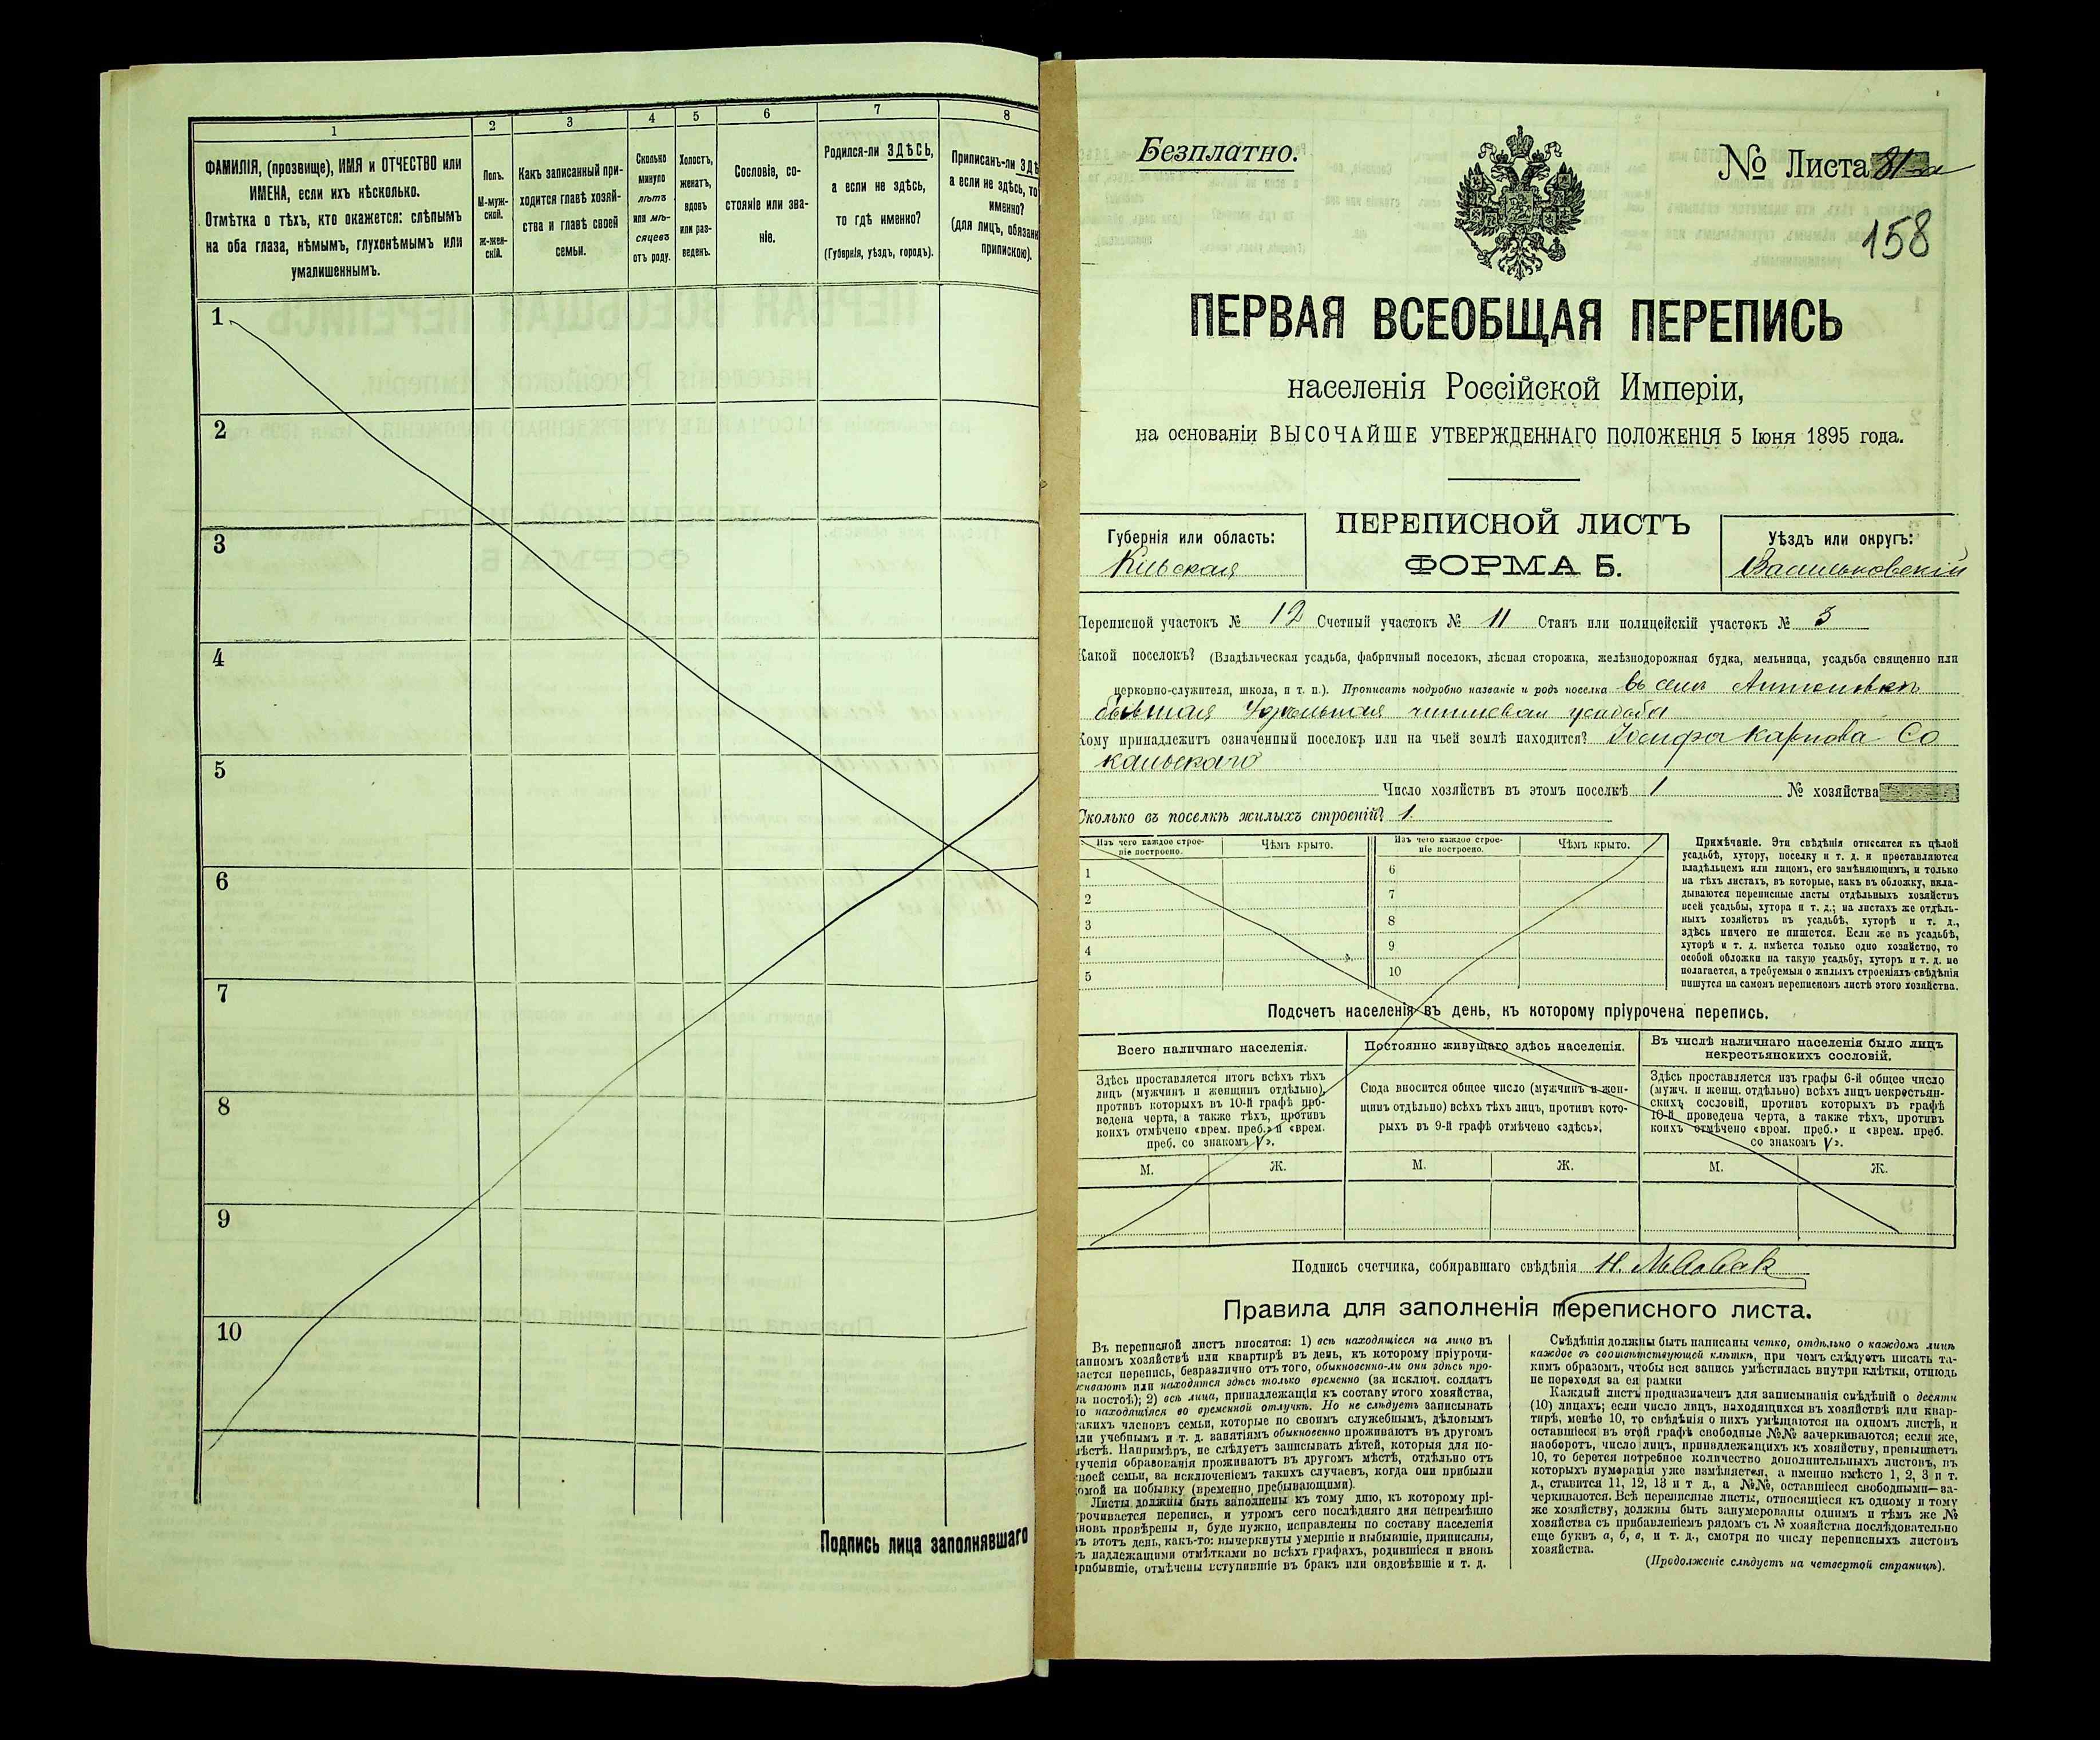 1
2
3
4
5
6
7
8
ФАМИЛІЯ, (прозвище), ИМЯ и ОТЧЕСТВО или
ИМЕНА, если ихъ нѣсколько.
Отмѣтка о тѣхъ, кто окажется: слѣпымъ
на оба глаза, нѣмымъ, глухонѣмымъ или
умалишеннымъ.
Полъ.
М-муж-
ской.
ж-жен-
скій.
Какъ записанный при-
ходится главѣ хозяй-
ства и главѣ своей
семьи.
Сколько
минуло
лѣтъ
или мѣ-
сяцевъ
отъ роду.
Холостъ,
женатъ,
вдовъ
или раз-
веденъ.
Сословіе, со-
стояніе или зва-
ніе.
Родился-ли ЗДѢСЬ,
а если не здѣсь,
то гдѣ именно?
(Губернія, уѣздъ, городъ).
Приписанъ-ли ЗДѢ
а если не здѣсь, то
именно?
(для лицъ, обязан
припискою).
1
2
3
4
5
6
7
8
9
10
Подпись лица заполнявшаго
Безплатно.
№ Листа 81-а
158
ПЕРВАЯ ВСЕОБЩАЯ ПЕРЕПИСЬ
населенія Россійской Имперіи,
на основаніи ВЫСОЧАЙШЕ УТВЕРЖДЕННАГО ПОЛОЖЕНІЯ 5 Іюня 1895 года.
Губернія или область:
Кіевская
ПЕРЕПИСНОЙ ЛИСТЪ
ФОРМА Б.
Уѣздъ или округъ:
Васильковскій
Переписной участокъ № 12 Счетный участокъ № 11 Станъ или полицейскій участокъ № 3
Какой поселокъ? (Владѣльческая усадьба, фабричный поселокъ, лѣсная сторожка, желѣзнодорожная будка, мельница, усадьба священно или
церковно-служителя, школа, и т. п.). Прописать подробно названіе и родъ поселка въ селѣ
бывшая чиншевая усадьба
Кому принадлежитъ означенный поселокъ или на чьей землѣ находится? Іосифа Карпова Со
кальскаго
Число хозяйствъ въ этомъ поселкѣ 1 № хозяйства
Сколько въ поселкѣ жилыхъ строеній? 1.
Изъ чего каждое строе-
ніе построено.
Чѣмъ крыто.
Изъ чего каждое строе-
ніе построено.
Чѣмъ крыто.
1
2
3
4
5
6
7
8
9
10
Примѣчаніе. Эти свѣдѣнія относятся къ цѣлой
усадьбѣ, хутору, поселку и т. д. и проставляются
владѣльцемъ или лицомъ, его замѣняющимъ, и только
на тѣхъ листахъ, въ которые, какъ въ обложку, вкла-
дываются переписные листы отдѣльныхъ хозяйствъ
всей усадьбы, хутора и т. д.; на листахъ же отдѣль-
ныхъ хозяйствъ въ усадьбѣ, хуторѣ и т. д.,
здѣсь ничего не пишется. Если же въ усадьбѣ,
хуторѣ и т. д. имѣется только одно хозяйство, то
особой обложки на такую усадьбу, хуторъ и т. д. не
полагается, а требуемыя о жилыхъ строеніяхъ свѣдѣнія
пишутся на самомъ переписномъ листѣ этого хозяйства.
Подсчетъ населенія въ день, къ которому пріурочена перепись.
Всего наличнаго населенія.
Постоянно живущаго здѣсь населенія.
Въ числѣ наличнаго населенія было лицъ
некрестьянскихъ сословій.
Здѣсь проставляется итогъ всѣхъ тѣхъ
лицъ (мужчинъ и женщинъ отдѣльно),
противъ которыхъ въ 10-й графѣ про-
ведена черта, а также тѣхъ, противъ
коихъ отмѣчено «врем. преб.» и «врем.
преб. со знакомъ V».
Сюда вносится общее число (мужчинъ и жен-
щинъ отдѣльно) всѣхъ тѣхъ лицъ, противъ кото-
рыхъ въ 9-й графѣ отмѣчено «здѣсь».
Здѣсь проставляется изъ графы 6-й общее число
(мужч. и женщ. отдѣльно) всѣхъ лицъ некрестьян-
скихъ сословій, противъ которыхъ въ графѣ
10-й проведена черта, а также тѣхъ, противъ
коихъ отмѣчено «врем. преб.» и «врем. преб.
со знакомъ V».
М.
Ж.
М.
Ж.
М.
Ж.
Подпись счетчика, собиравшаго свѣдѣнія Н.
Правила для заполненія переписного листа.
Въ переписной листъ вносятся: 1) всѣ находящіеся на лицо въ
данномъ хозяйствѣ или квартирѣ въ день, къ которому пріурочи-
вается перепись, безразлично отъ того, обыкновенно-ли они здѣсь про-
живаютъ или находятся здѣсь только временно (за исключ. солдатъ
на постоѣ); 2) всѣ лица, принадлежащія къ составу этого хозяйства,
но находящіяся во временной отлучкѣ. Но не слѣдуетъ записывать
такихъ членовъ семьи, которые по своимъ служебнымъ, дѣловымъ
или учебнымъ и т. д. занятіямъ обыкновенно проживаютъ въ другомъ
мѣстѣ. Напримѣръ, не слѣдуетъ записывать дѣтей, которыя для по-
лученія образованія проживаютъ въ другомъ мѣстѣ, отдѣльно отъ
своей семьи, за исключеніемъ такихъ случаевъ, когда они прибыли
домой на побывку (временно пребывающими).
Листы должны быть заполнены къ тому дню, къ которому прі-
урочивается перепись, и утромъ сего послѣдняго дня непремѣнно
вновь провѣрены и, буде нужно, исправлены по составу населенія
въ этотъ день, какъ-то: вычеркнуты умершіе и выбывшіе, приписаны,
съ надлежащими отмѣтками во всѣхъ графахъ, родившіеся и вновь
прибывшіе, отмѣчены вступившіе въ бракъ или овдовѣвшіе и т. д.
Свѣдѣнія должны быть написаны четко, отдѣльно о каждомъ лицѣ
каждое въ соотвѣтствующей клѣткѣ, при чемъ слѣдуетъ писать та-
кимъ образомъ, чтобы вся запись умѣстилась внутри клѣтки, отнюдь
не переходя за ея рамки
Каждый листъ предназначенъ для записыванія свѣдѣній о десяти
(10) лицахъ; если число лицъ, находящихся въ хозяйствѣ или квар-
тирѣ, менѣе 10, то свѣдѣнія о нихъ умѣщаются на одномъ листѣ, и
оставшіеся въ этой графѣ свободные №№ зачеркиваются; если же,
наоборотъ, число лицъ, принадлежащихъ къ хозяйству, превышаетъ
10, то берется потребное количество дополнительныхъ листовъ, въ
которыхъ нумерація уже измѣняется, а именно вмѣсто 1, 2, 3 и т.
д., ставится 11, 12, 13 и т д., а №№, оставшіеся свободными—за-
черкиваются. Всѣ переписные листы, относящіеся къ одному и тому
же хозяйству, должны быть занумерованы однимъ и тѣмъ же №
хозяйства съ прибавленіемъ рядомъ съ № хозяйства послѣдовательно
еще буквъ а, б, в, и т. д., смотря по числу переписныхъ листовъ
хозяйства.
(Продолженіе слѣдуетъ на четвертой страницѣ).